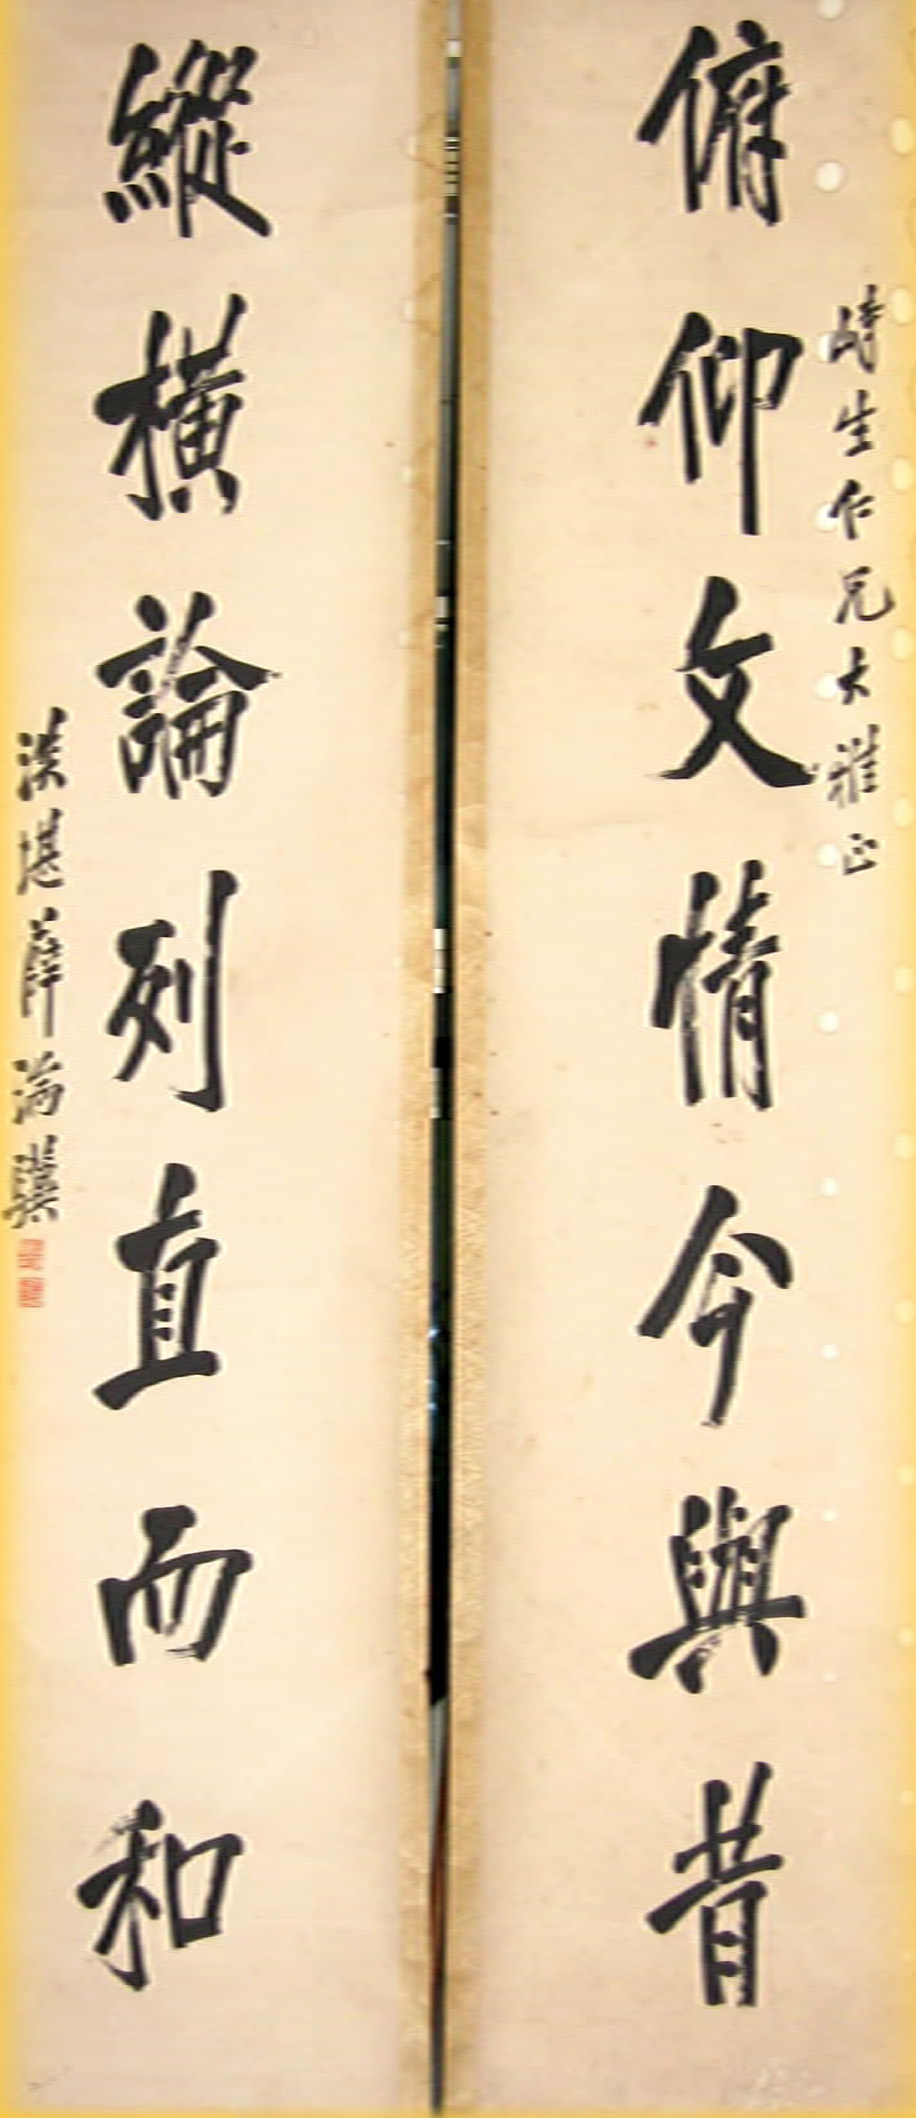 俯仰文情今與昔
峙生仁兄大雅正
縱橫論列直而和
淡堪薛滿璜